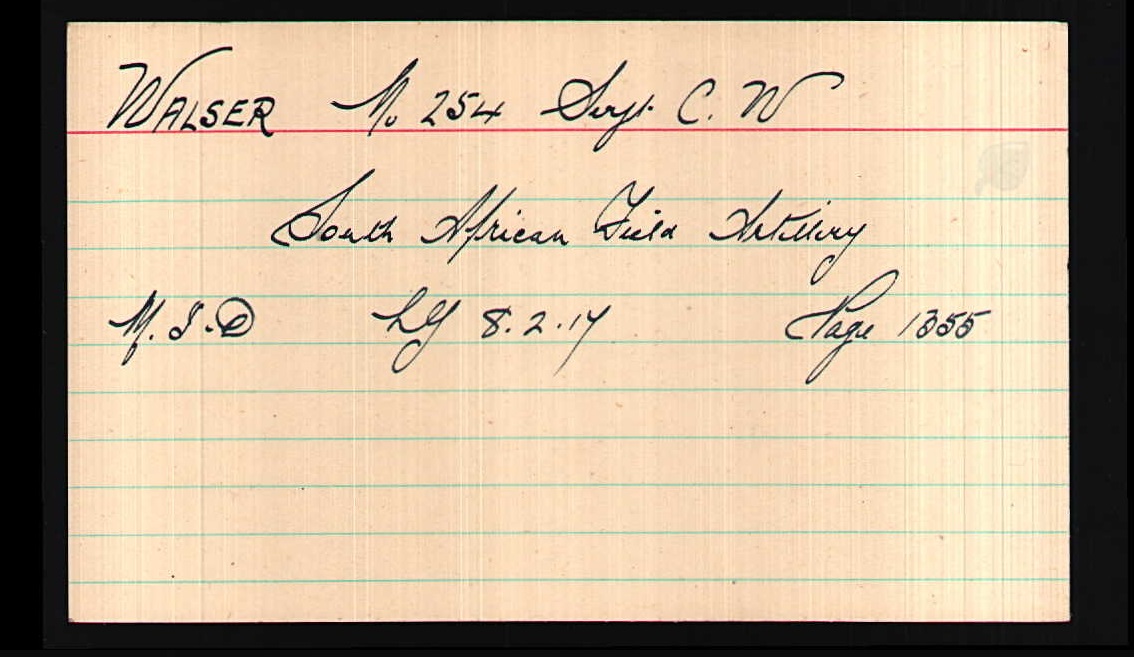 WALSER No 254 Sergt. C. W
South African Field Artillery
M.I.D LG 8.2.17 Page 1355